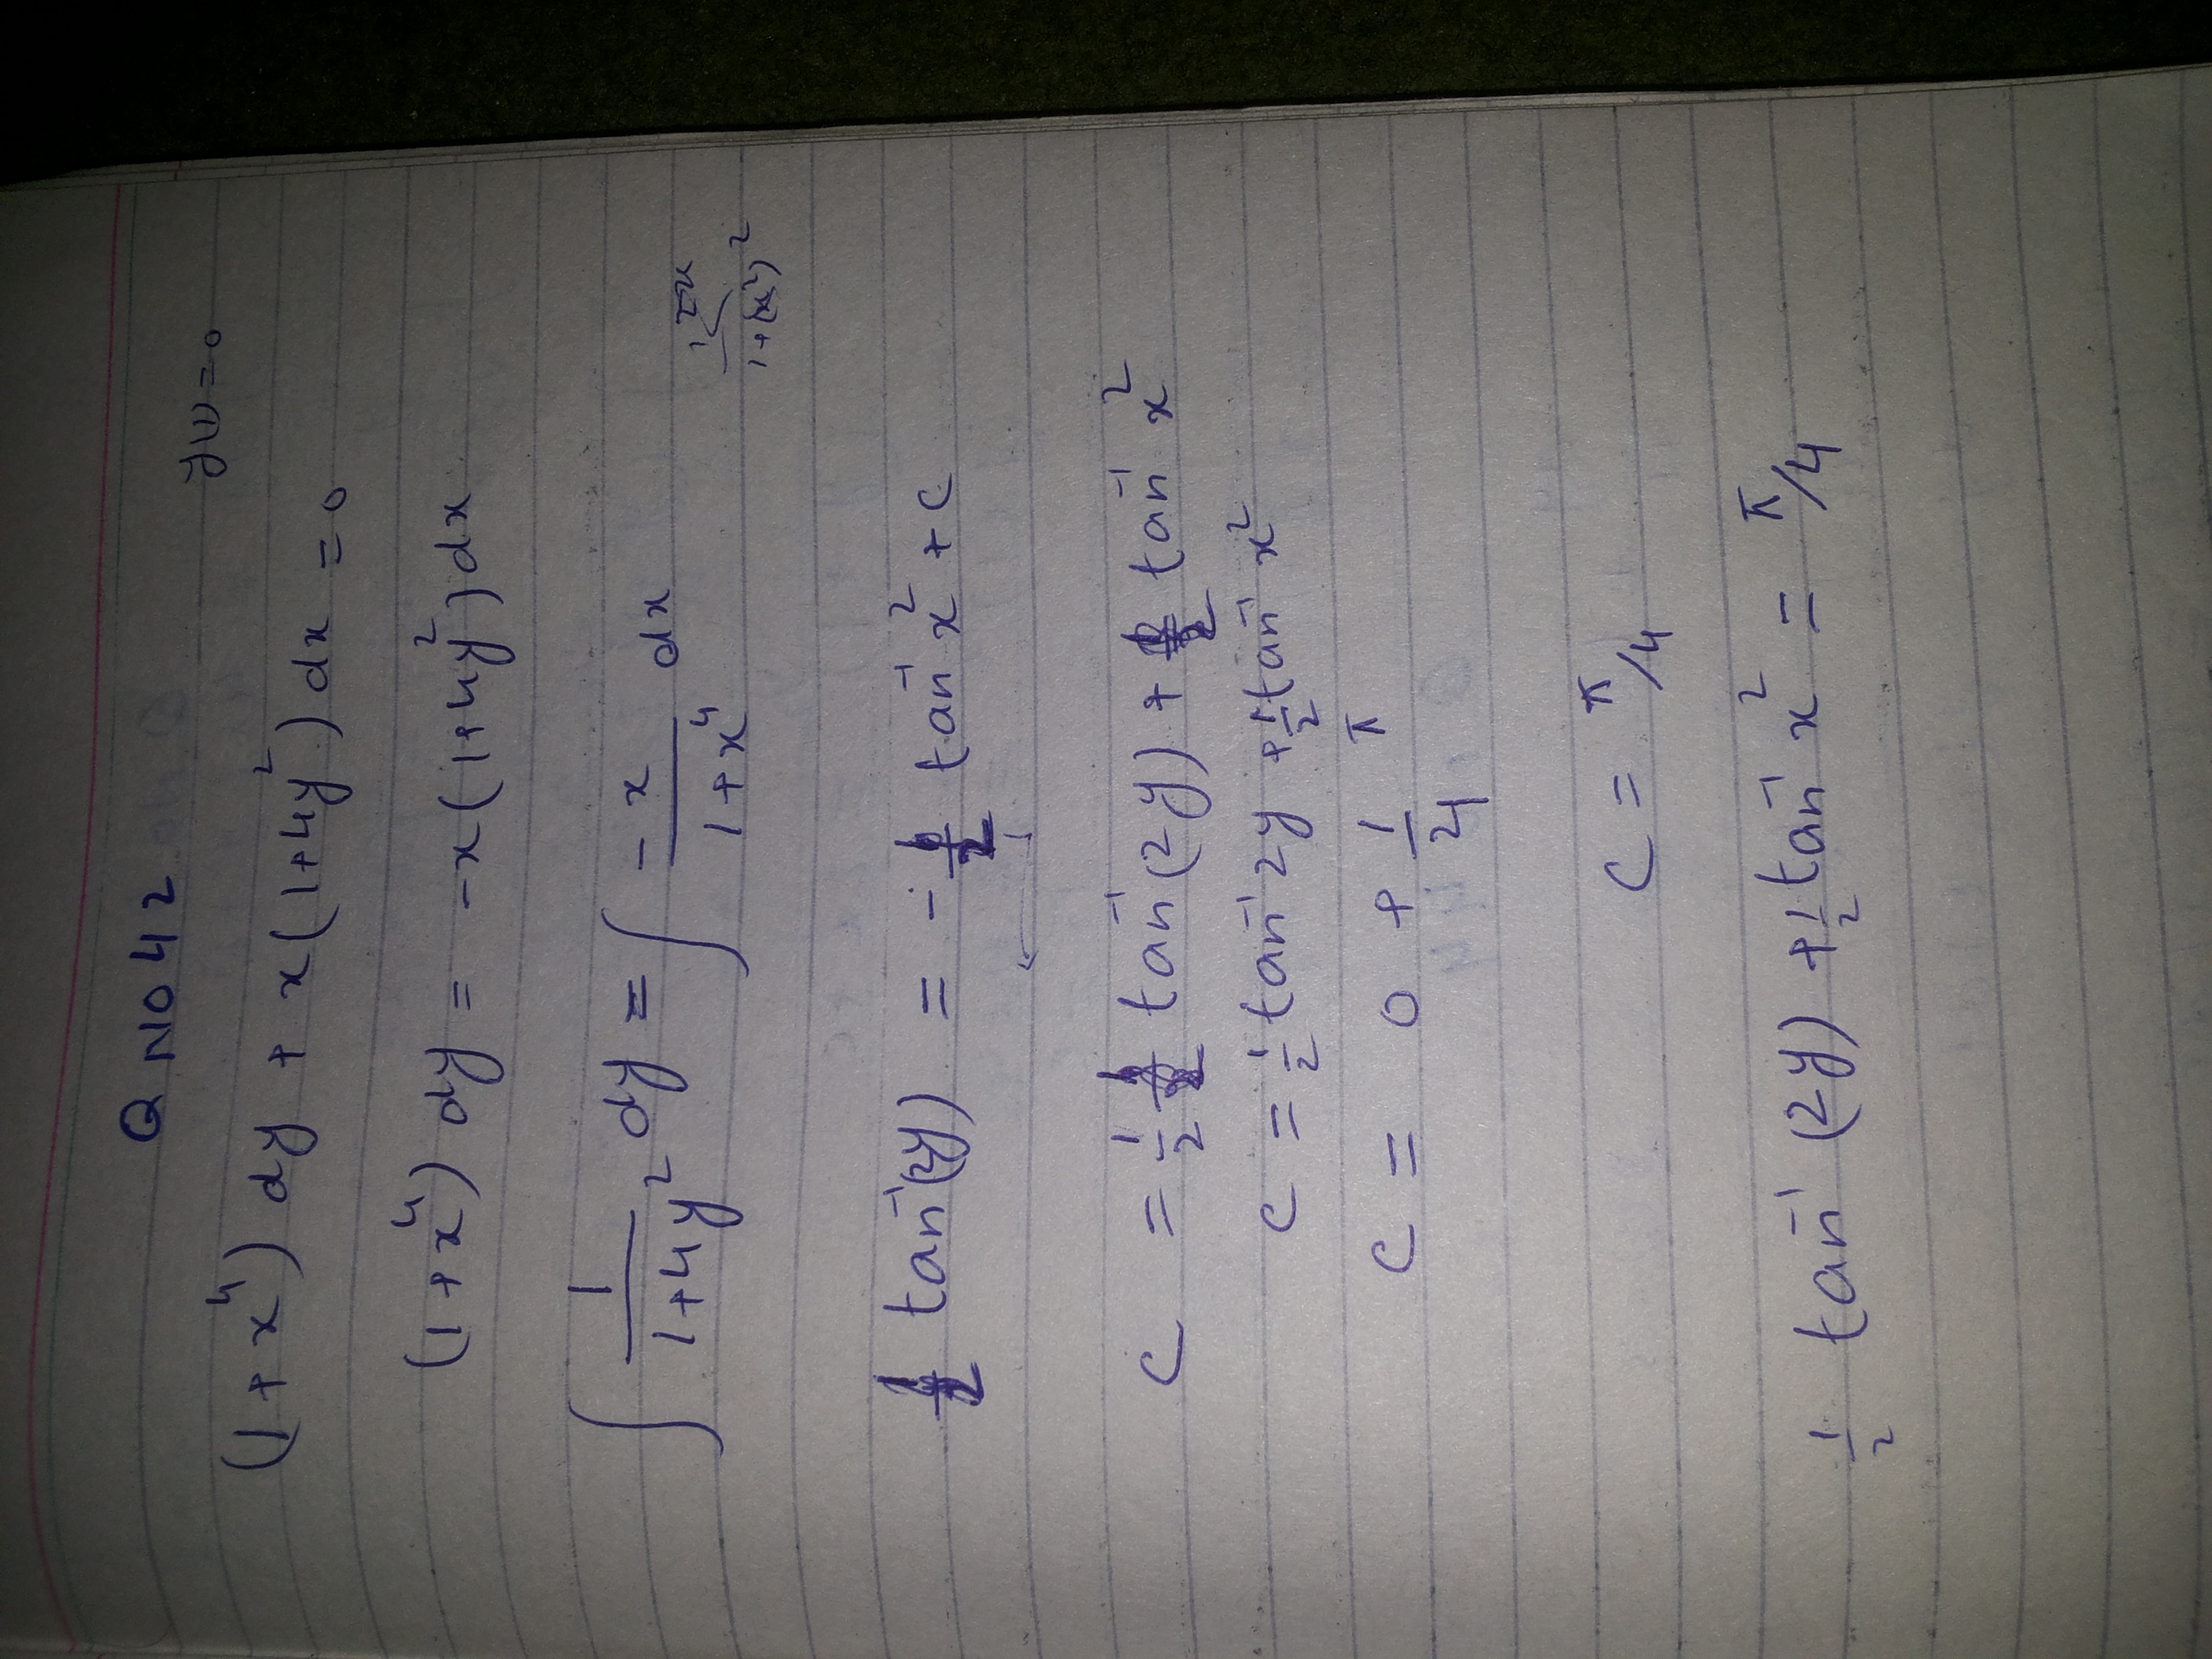 Q NO 42
y(1) = 0
(1+x⁴) dy + x(1+4y²) dx = 0
(1+x⁴) dy = -x(1+4y²) dx
∫ 1/(1+4y²) dy = ∫ -x/(1+x⁴) dx
1+(x²)²
1/2 tan⁻¹(2y) = - 1/2 tan⁻¹ x² + c
c = 1/2 tan⁻¹(2y) + 1/2 tan⁻¹ x²
c = 1/2 tan⁻¹ 2y + 1/2 tan⁻¹ x²
c = 0 + 1/4 π
c = π/4
1/2 tan⁻¹ (2y) + 1/2 tan⁻¹ x² = π/4